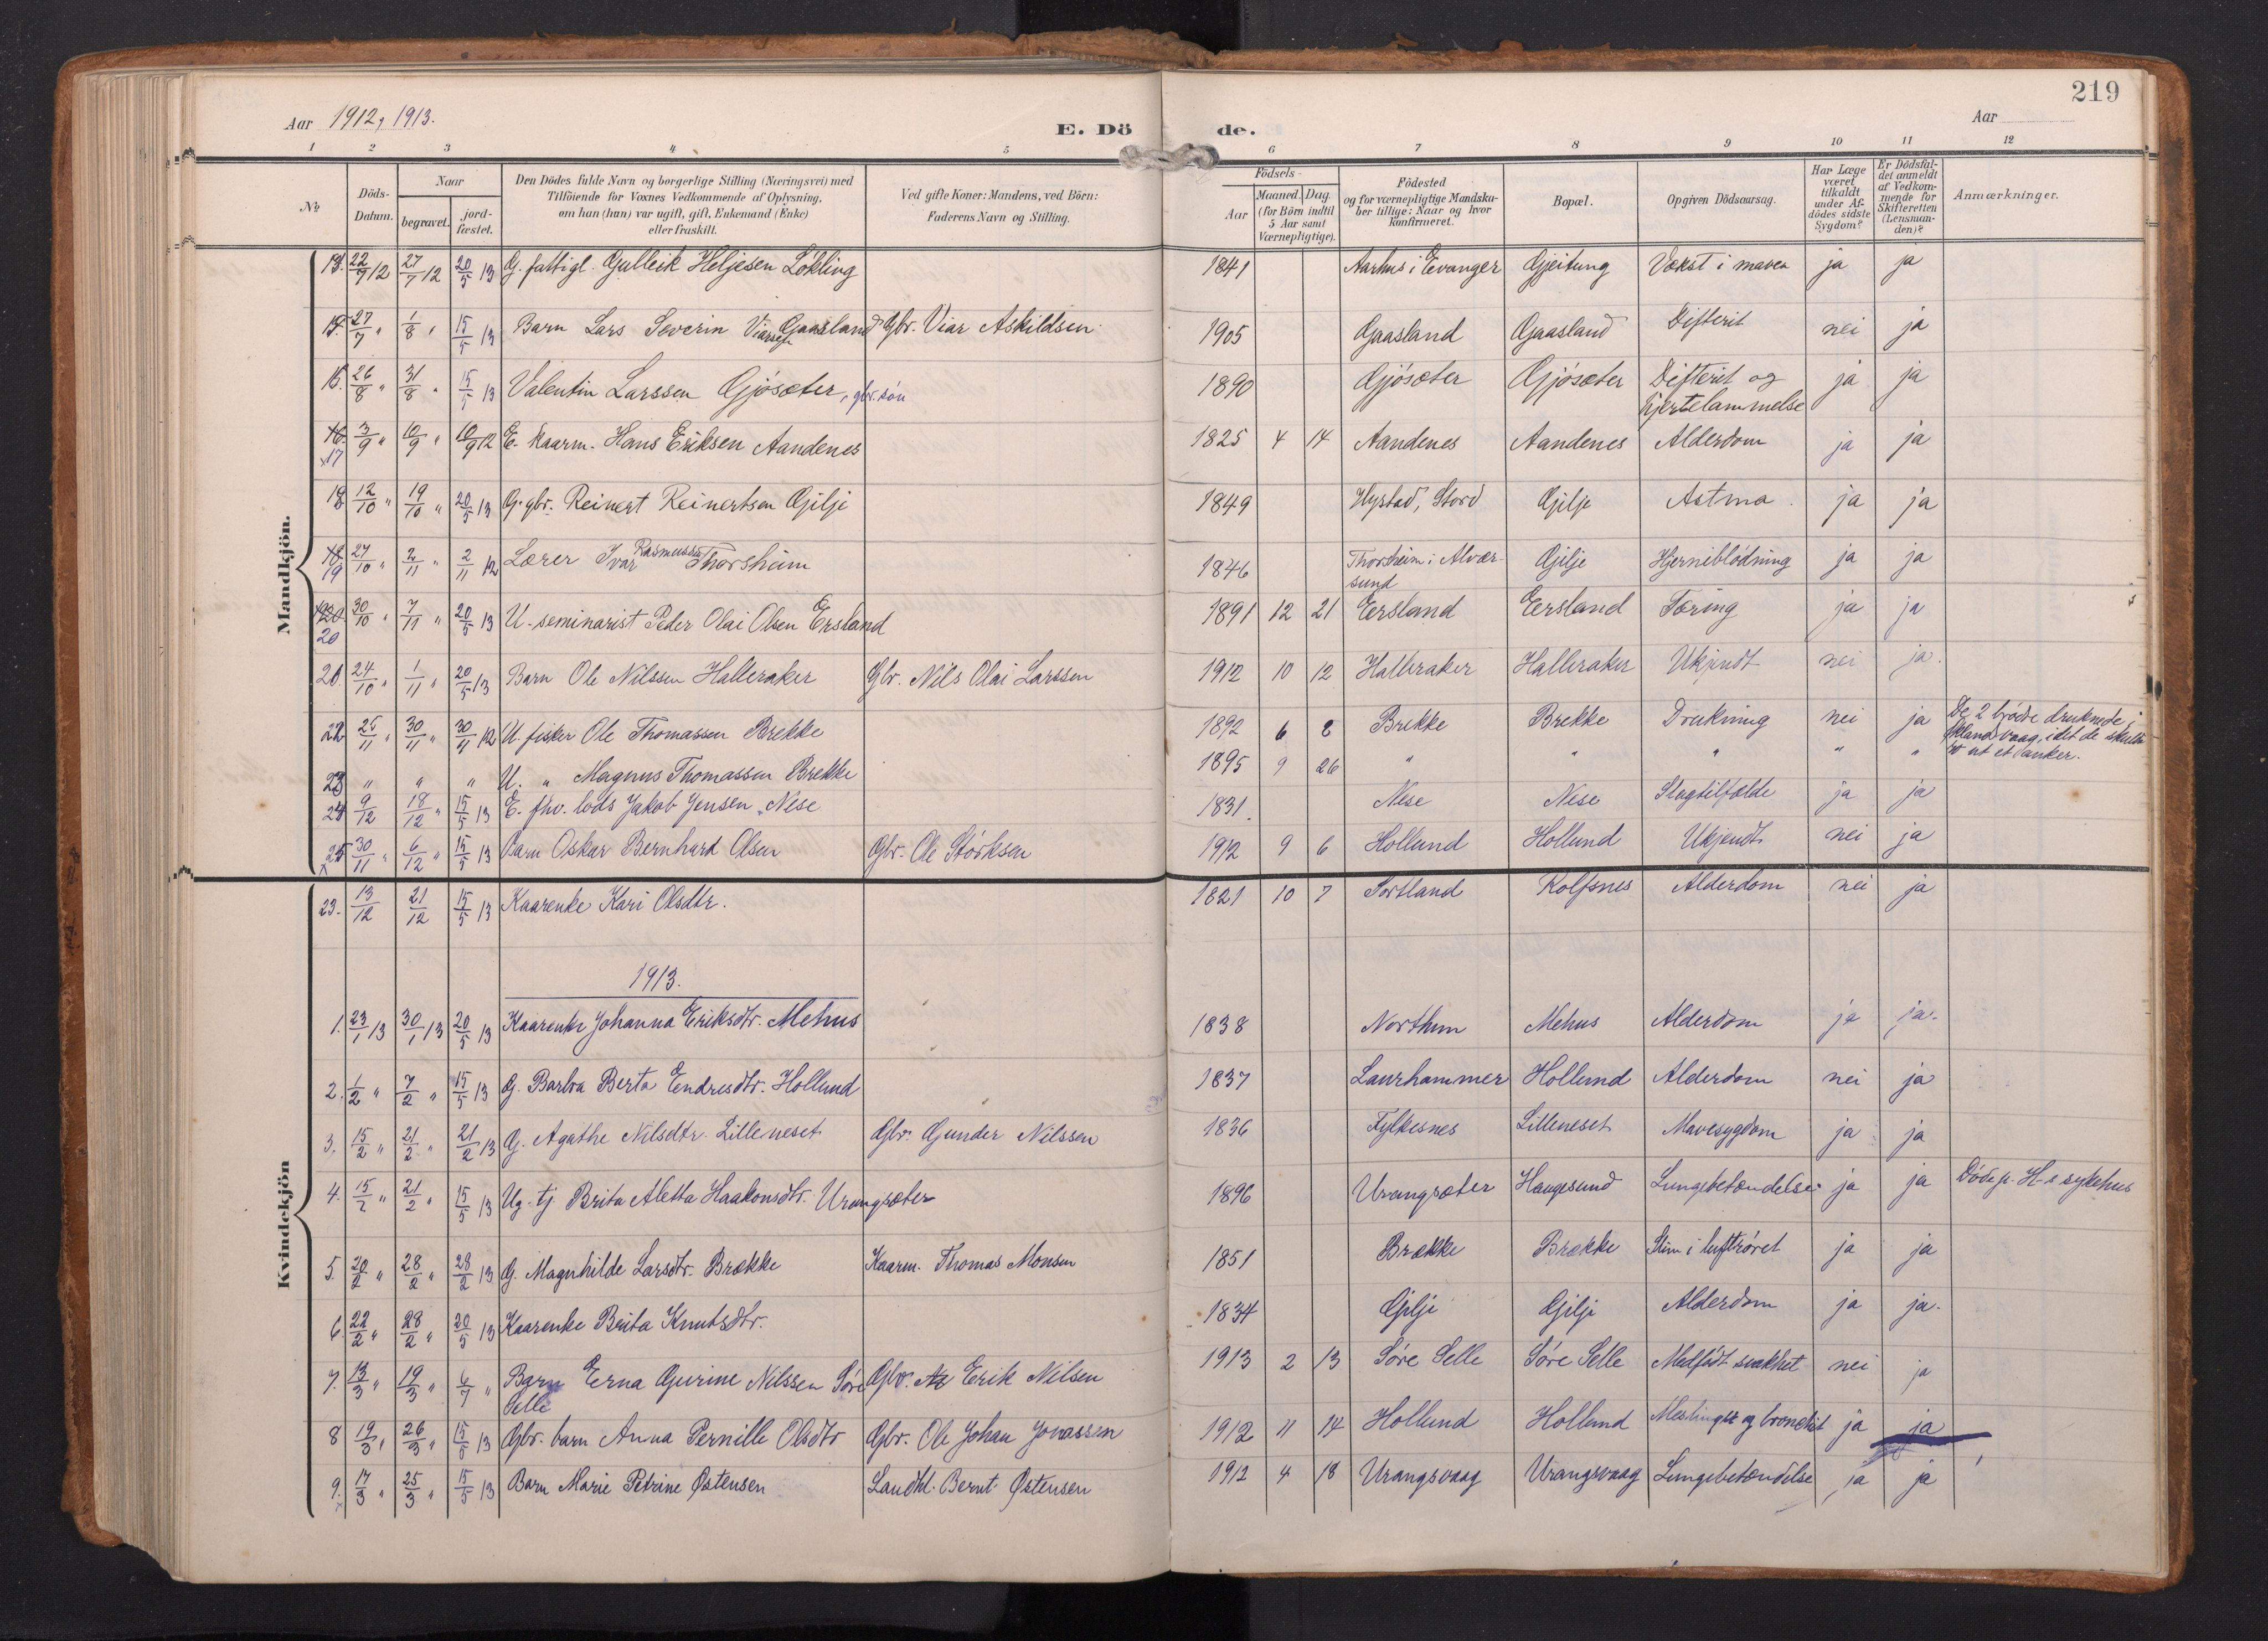 219
Aar 1912, 1913.
E. Dö de.
Aar
1 2 3 4 5 6 7 8 9 10 11 12
No
Döds-Datum.
Naar
begravet.
jord-fæstet.
Den Dödes fulde Navn og borgerlige Stilling (Næringsvei) med
Tilföiende for Voxnes Vedkommende af Oplysning,
om han (hun) var ugift, gift, Enkemand (Enke)
eller fraskilt.
Ved gifte Koner: Mandens, ved Börn:
Faderens Navn og Stilling.
Födsels-
Aar
Maaned. Dag.
(for Börn indtil
5 Aar samt
Værnepligtige).
Födested
og for værnepligtige Mandska-
ber tillige: Naar og hvor
konfirmeret.
Bopæl.
Opgiven Dödsaarsag.
Har Læge
været
tilkaldt
under Af-
dödes sidste
Sygdom?
Er Dödsfal-
det anmeldt
af Vedkom-
mende for
Skifteretten
(Lensman-
den)?
Anmærkninger.
Mandkjön.
22/7 12 27/7 12 20/5 13 G. fattigl. Gulleik Heljesen Løkling 1841 Aarhus i Evanger Gjeitung Vækst i maven ja ja
27/7 " 1/8 " 15/5 13 Barn Lars Severin Viarsen Gaasland Gbr. Viar Askildsen 1905 Gaasland Gaasland Difterit nei ja
16. 26/8 " 31/8 " 15/5 13 Valentin Larssen Gjøsæter, gbr. søn 1890 Gjøsæter Gjøsæter Difterit og ja ja
hjertelammelse
16. 17 3/9 " 10/9 " 10/9 12 E. kaarm. Hans Eriksen Aandenes 1825 4 14 Aandenes Aandenes Alderdom ja ja
18 12/10 " 19/10 " 20/5 13 G. gbr. Reinert Reinertsen Gilje 1849 Hystad, Stord Gilje Astma. ja ja
18 19 27/10 " 2/11 " 2/11 12 Lærer Ivar Rasmussen Thorsheim 1846 Thorsheim i Alvær- Gilje Hjerneblødning ja ja
sund
20 30/10 " 7/11 " 20/5 13 U. seminarist Peder Olai Olsen Ersland 1891 12 21 Eersland Eersland Tæring ja ja
21. 24/10 " 1/11 " 20/5 13 Barn Ole Nilssen Halleraker Gbr. Nils Olai Larssen 1912 10 12 Halleraker Halleraker Ukjendt nei ja.
22 25/11 " 30/11 " 30/11 12 U. fisker Ole Thomassen Brekke 1892 6 8 Brekke Brekke Drukning nei ja De 2 brødre druknede i
23 " " " U. " Magnus Thomassen Brekke 1895 9 26 " " " " " idet de skulde
ut et anker.
24 9/12 18/12 " 15/5 13 E. fhv. lods Jakob Jensen Nese 1831. Nese Nese Slagtilfælde ja ja
25 30/11 " 6/12 " 15/5 13 Barn Oskar Bernhard Olsen Gbr. Ole Størksen 1912 9 6 Hollund Hollund Ukjendt nei ja
Kvindekjön
23. 13/12 21/12 15/5 13 Kaarenke Kari Olsdtr. 1821 10 7 Sortland Rolfsnes Alderdom nei ja
1913.
1. 23/1 13 30/1 13 20/5 13 Kaarenke Johanna Eriksdtr. Mehus 1838 Northun Mehus Alderdom ja ja.
2. 1/2 " 7/2 " 15/5 13 G. Barbra Berta Eendresdtr. Hollund 1837 Laurhammer Hollund Alderdom nei ja
3. 15/2 " 21/2 " 21/2 13 G. Agathe Nilsdtr. Lilleneset Gbr. Gunder Nilssen 1836 Fylkesnes Lilleneset Mavesygdom ja ja
4. 15/2 " 21/2 " 15/5 13 Ug. tj. Brita Aletta Haakonsdtr. Urangsæter 1896 Urangsæter Haugesund Lungebetændelse ja ja Døde p. H-s sykehus
5. 20/2 " 28/2 " 28/2 13 G. Magnhilde Larsdtr. Brække Kaarm. Thomas Monsen 1851 Brække Brække Slim i luftrøret ja ja
6. 22/2 " 28/2 " 20/5 13 Kaarenke Brita Knutsdtr. 1834 Gilje Gilje Alderdom ja ja.
7. 13/3 " 19/3 " 6/7 " Barn Erna Gurine Nilssen Søre Gbr. Erik Nilsen 1913 2 13 Søre Selle Søre Selle Medfødt svakhet nei ja
Selle
8 19/3 " 26/3 " 15/5 13 Gbr. barn Anna Pernille Olsdtr Gbr. Ole Johan Jonassen 1912 11 14 Hollund Hollund Meslinger og bronchit ja ja
9. 17/3 " 25/3 " 15/5 13 Barn Marie Petrine Østensen Landhl. Bernt Østensen 1912 4 18 Urangsvaag Urangsvaag Lungebetændelse ja ja